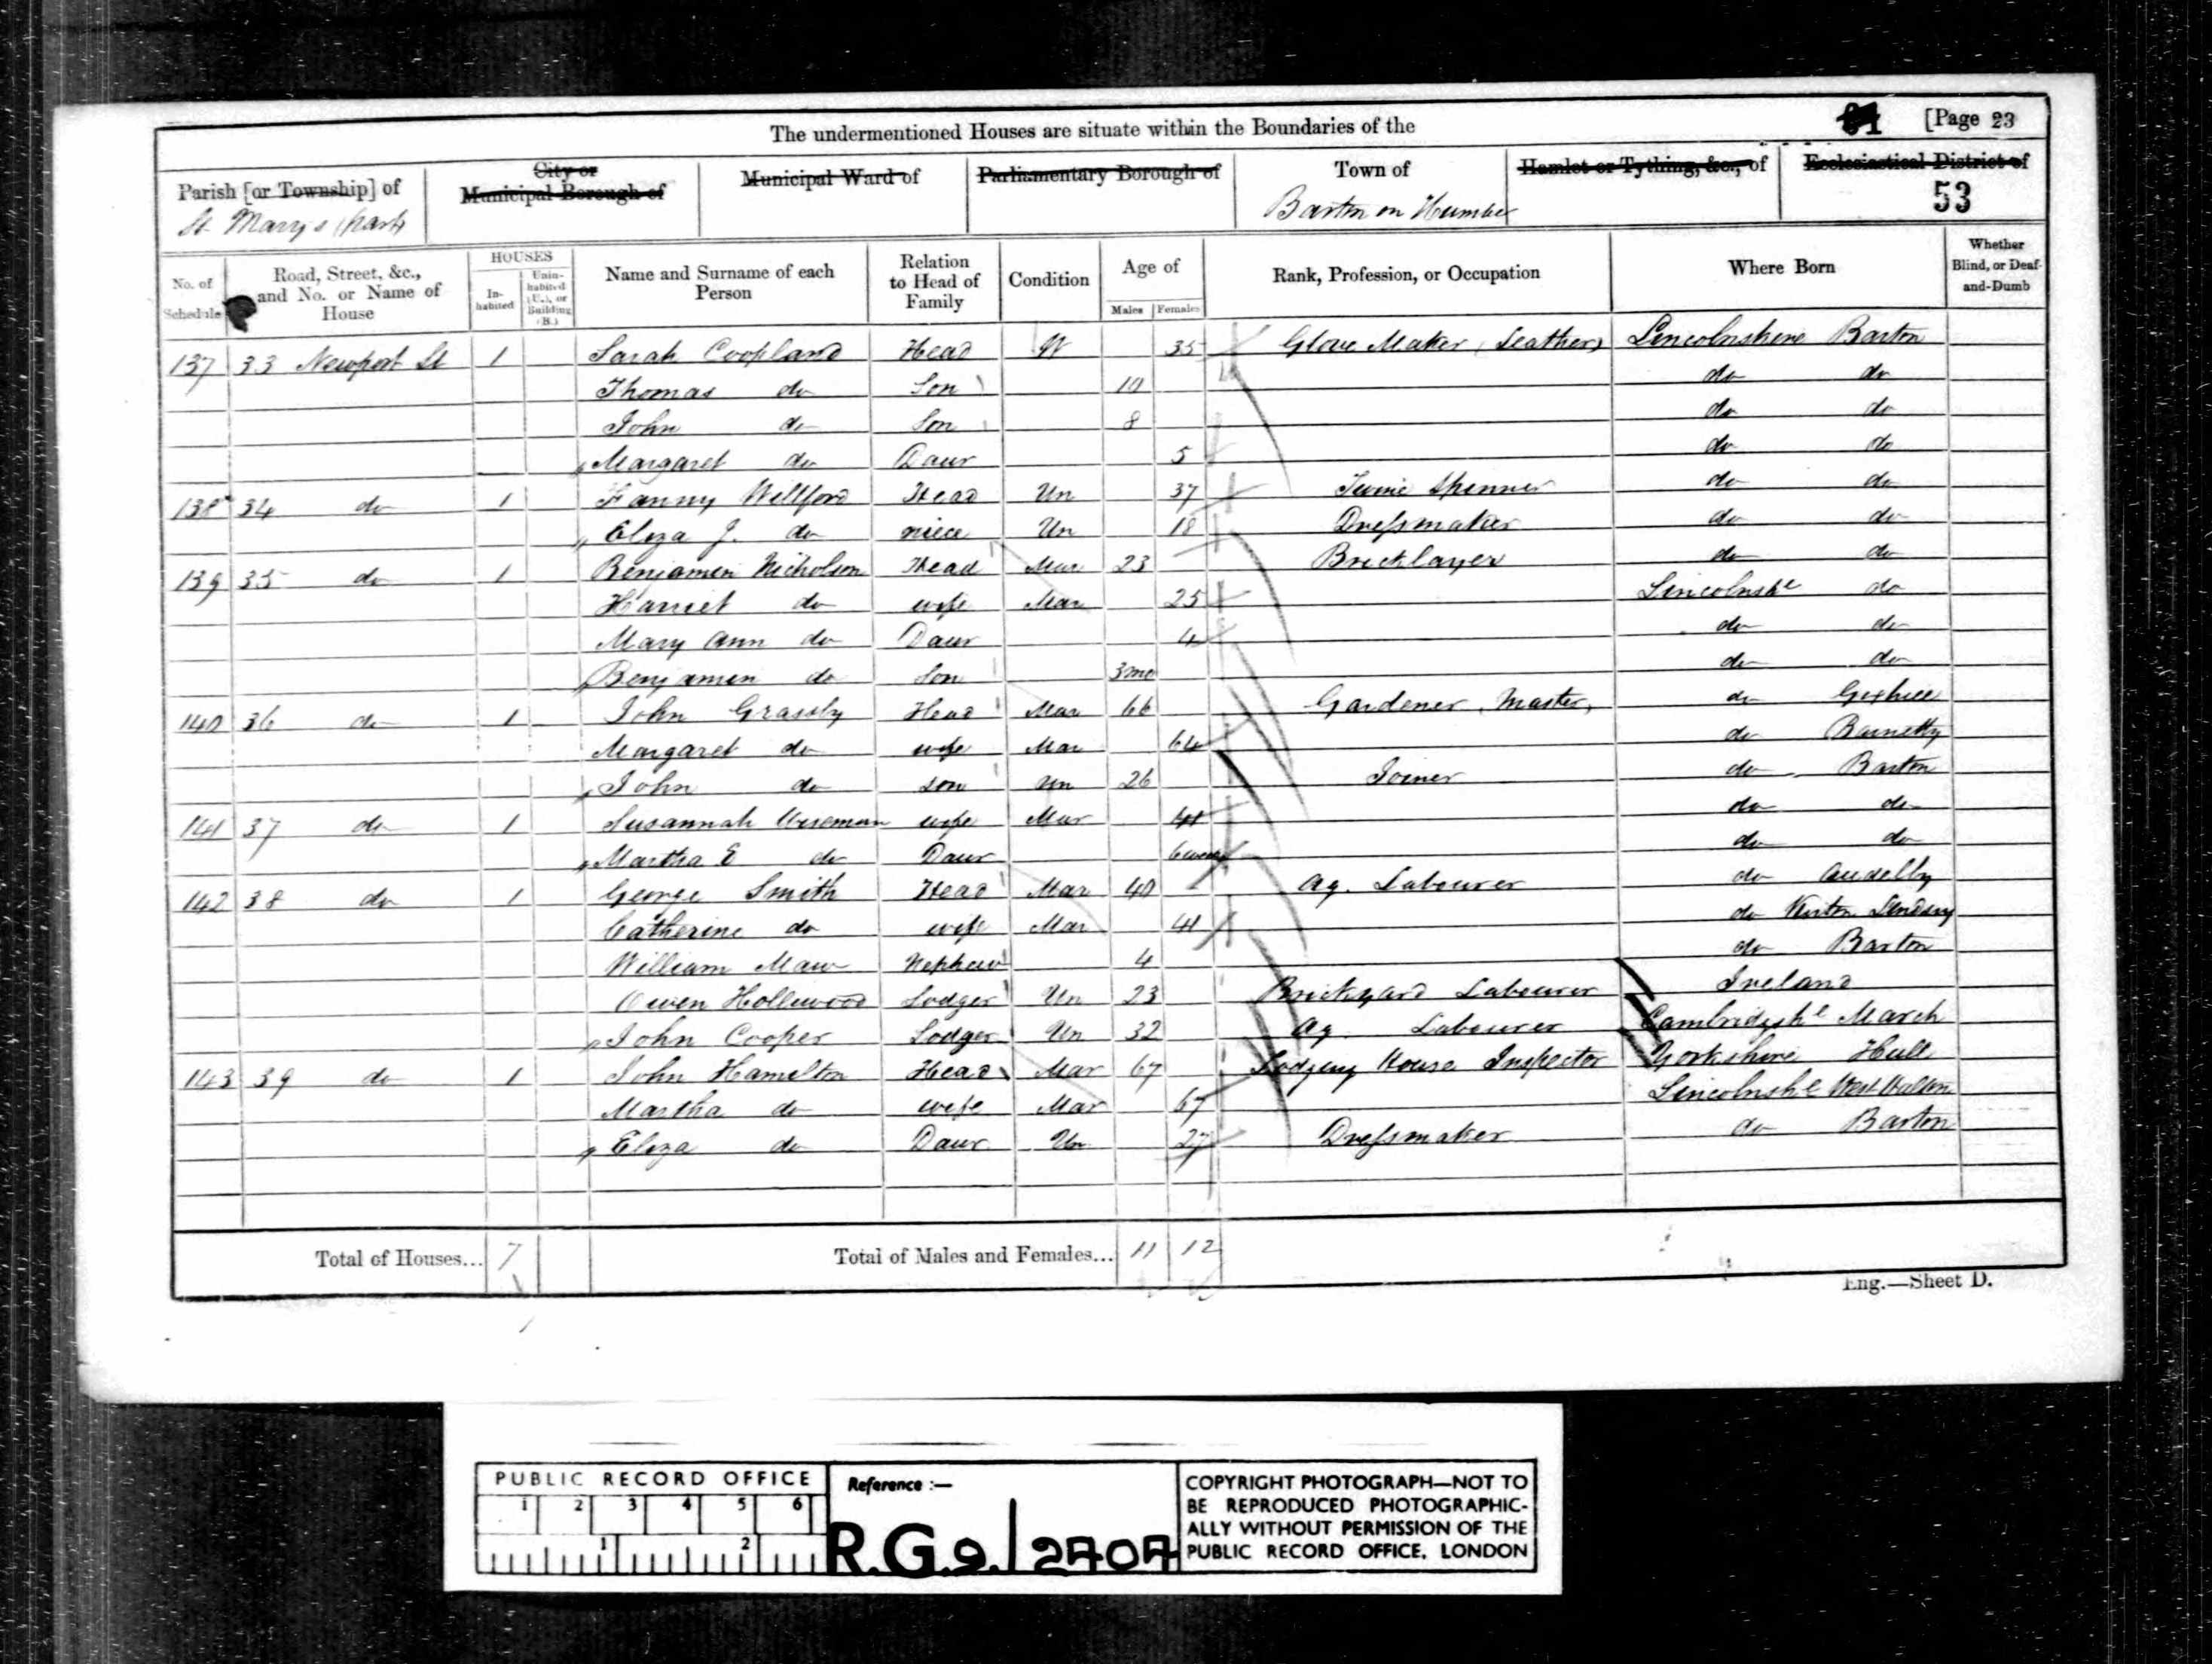 The undermentioned Houses are situate within the Boundaries of the
[Page 23
Parish [or Township] of
St. Mary's (part)
City or Municipal Borough of
Municipal Ward of
Parliamentary Borough of
Town of
Barton on Humber
Hamlet or Tything, &c., of
Ecclesiastical District of
53
No. of Schedule
Road, Street, &c., and No. or Name of House
HOUSES
In-habited
Unin-habited (U.), or Building (B.)
Name and Surname of each Person
Relation to Head of Family
Condition
Age of
Males
Females
Rank, Profession, or Occupation
Where Born
Whether Blind, or Deaf-and-Dumb
137 33 Newport St 1 Sarah Coopland Head W 35 Glove Maker (Leather) Lincolnshire Barton
Thomas do Son 10 do do
John do Son 8 do do
Margaret do Daur 5 do do
138 34 do 1 Fanny Willford Head Un 37 Twine Spinner do do
Eliza J. do niece Un 18 Dressmaker do do
139 35 do 1 Benjamin Nicholson Head Mar 23 Bricklayer do do
Harriet do wife Mar 25 Lincolnshe do
Mary Ann do Daur 4 do do
Benjamin do Son 3 mo do do
140 36 do 1 John Grassby Head Mar 66 Gardener, Master, do
Margaret do wife Mar 64 do Barnetby
John do son Un 26 Joiner do Barton
141 37 do 1 Susannah Wiseman wife Mar 41 do do
Martha E do Daur do do
142 38 do 1 George Smith Head Mar 40 Ag. Labourer do Audelby
Catherine do wife Mar 41 do Kirton Lindsey
William Maw Nephew 4 do Barton
Owen Hollewood Lodger Un 23 Brickyard Labourer Ireland
John Cooper Lodger Un 32 Ag. Labourer Cambridgshe March
143 39 do 1 John Hamelton Head Mar 67 Lodging House Inspector Yorkshire Hull
Martha do wife Mar 67 Lincolnshe West Halton
Eliza do Daur Un 27 Dressmaker do Barton
Total of Houses... 7
Total of Males and Females... 11 12
Eng.—Sheet D.
PUBLIC RECORD OFFICE
1 2 3 4 5 6
1 2
Reference :—
R.G.9./2404
COPYRIGHT PHOTOGRAPH—NOT TO
BE REPRODUCED PHOTOGRAPHIC-
ALLY WITHOUT PERMISSION OF THE
PUBLIC RECORD OFFICE, LONDON